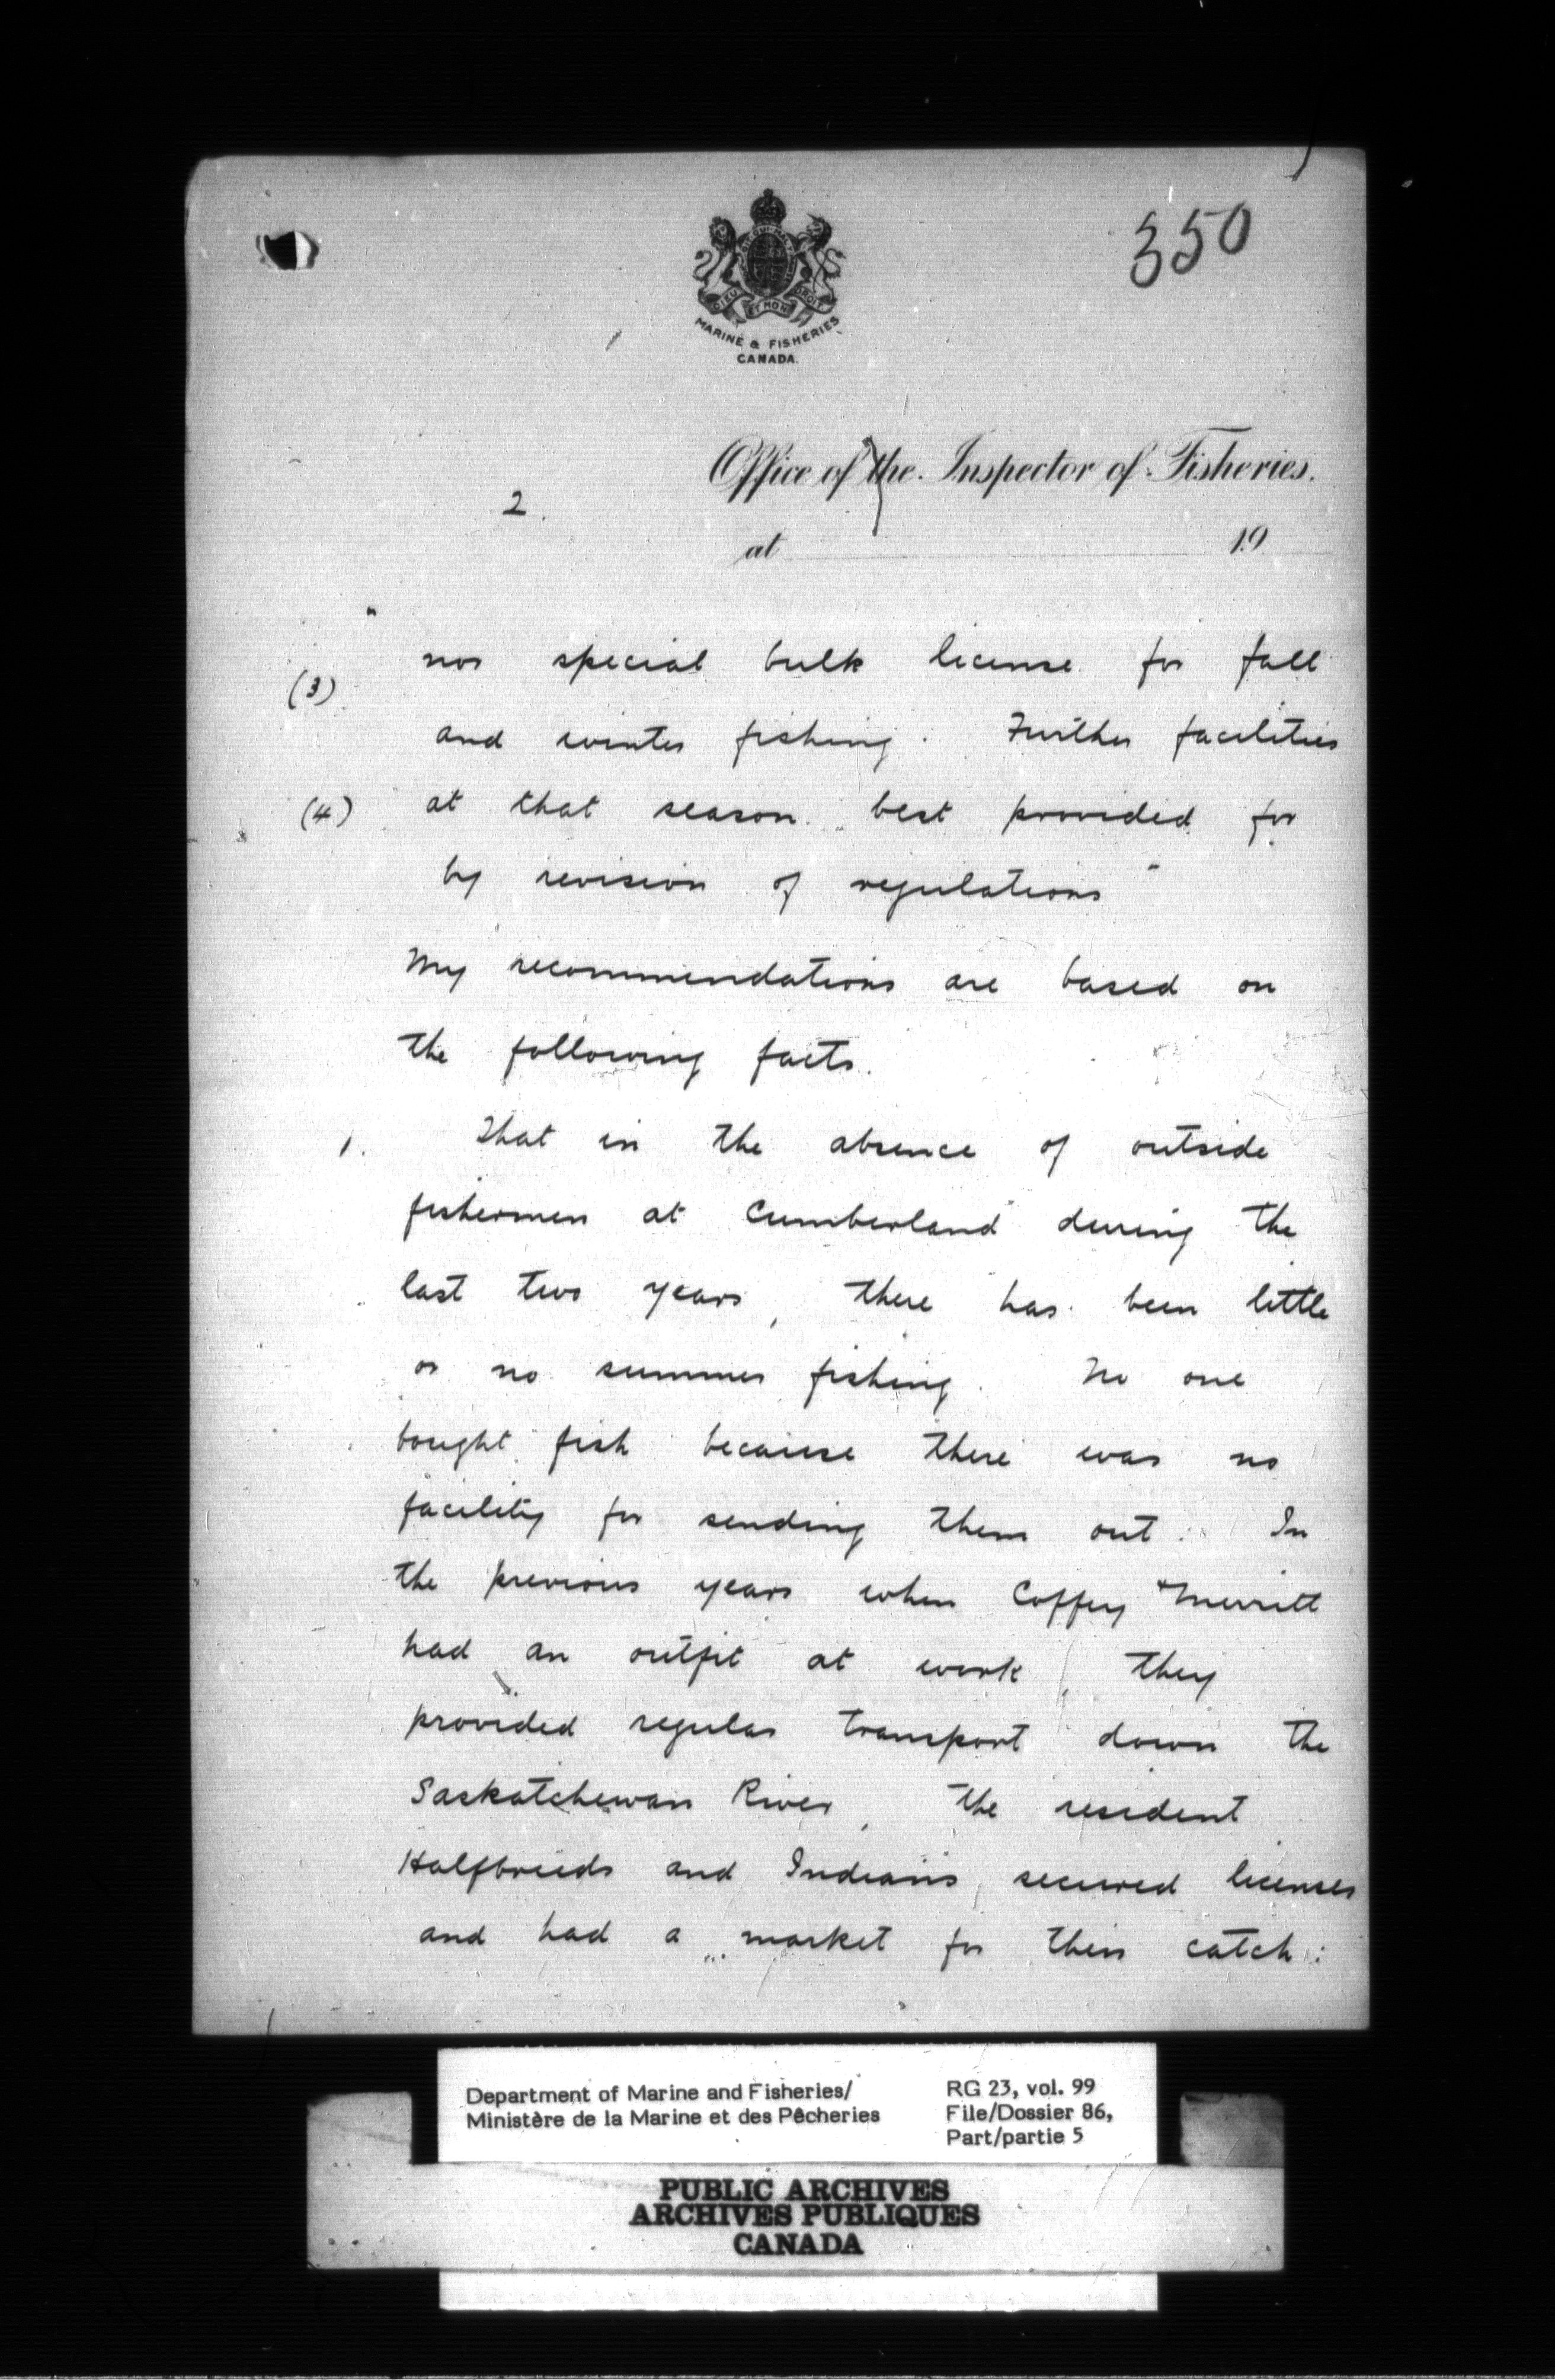 350
DIEU ET MON DROIT
MARINE & FISHERIES
CANADA.
Office of the Inspector of Fisheries.
2.
at 19
"
(3) nor special bulk license for fall
and winter fishing. Further facilities
(4) at that season best provided for
by revision of regulations"
My recommendations are based on
the following facts.
1. That in the absence of outside
fishermen at Cumberland during the
last two years, there has been little
or no summer fishing. No one
bought fish because there was no
facility for sending them out. In
the previous years when Coffey & Merritt
had an outfit at work, they
provided regular transport down the
Saskatchewan River, the resident
Halfbreeds and Indians, secured licenses
and had a market for their catch:
Department of Marine and Fisheries/
Ministère de la Marine et des Pêcheries
RG 23, vol. 99
File/Dossier 86,
Part/partie 5
PUBLIC ARCHIVES
ARCHIVES PUBLIQUES
CANADA